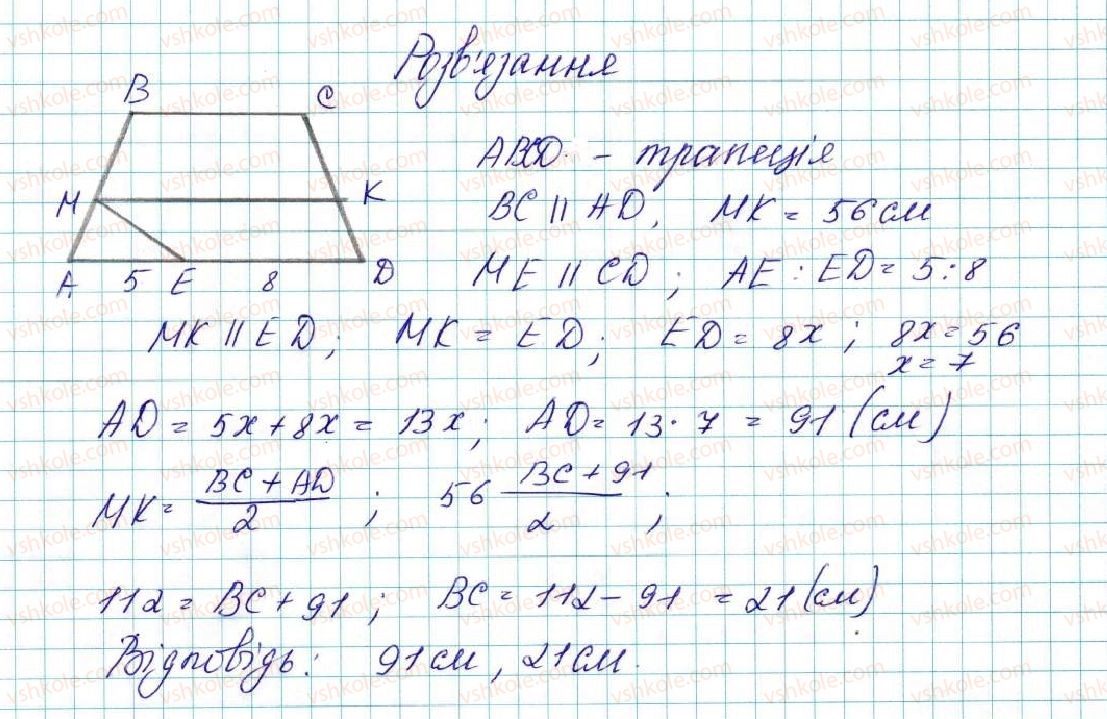 Розв'язання
B C
ABCD. - трапеція
M K
BC || AD, MK = 56 см
A 5 E 8 D
ME || CD; AE : ED = 5 : 8
MK || ED; MK = ED; ED = 8x; 8x = 56
x = 7
AD = 5x + 8x = 13x; AD = 13 · 7 = 91 (см)
MK = BC + AD / 2 ; 56 BC + 91 / 2 ;
112 = BC + 91; BC = 112 - 91 = 21 (см)
Відповідь: 91 см, 21 см.
vshkole.com